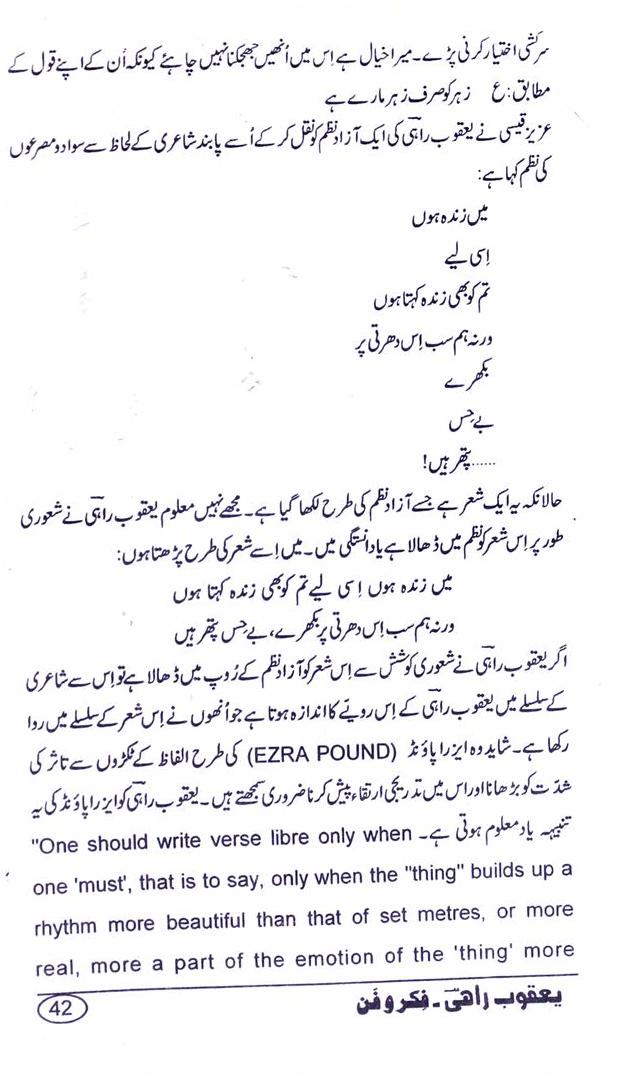 سرکشی اختیار کرنی پڑے۔ میرا خیال ہے اِس میں اُنھیں جھجکنا نہیں چاہئے کیونکہ اُن کے اپنے قول کے
مطابق: ع زہر کو صرف زہر مارے ہے
عزیز قیسی نے یعقوب راہیؔ کی ایک آزاد نظم کو نقل کر کے اُسے پابند شاعری کے لحاظ سے سوا دو مصرعوں
کی نظم کہا ہے:
میں زندہ ہوں
اِسی لیے
تم کو بھی زندہ کہتا ہوں
ورنہ ہم سب اِس دھرتی پر
بکھرے
بے حِس
......پتھر ہیں!
حالانکہ یہ ایک شعر ہے جسے آزاد نظم کی طرح لکھا گیا ہے۔ مجھے نہیں معلوم یعقوب راہیؔ نے شعوری
طور پر اِس شعر کو نظم میں ڈھالا ہے یا دانستگی میں۔ میں اِسے شعر کی طرح پڑھتا ہوں:
میں زندہ ہوں اِسی لیے تم کو بھی زندہ کہتا ہوں
ورنہ ہم سب اِس دھرتی پر بکھرے، بے حِس پتھر ہیں
اگر یعقوب راہیؔ نے شعوری کوشش سے اِس شعر کو آزاد نظم کے رُوپ میں ڈھالا ہے تو اِس سے شاعری
کے سلسلے میں یعقوب راہیؔ کے اِس رویّے کا اندازہ ہوتا ہے جو اُنھوں نے اِس شعر کے سلسلے میں روا
رکھا ہے۔ شاید وہ ایزرا پاؤنڈ (EZRA POUND) کی طرح الفاظ کے ٹکڑوں سے تاثر کی
شدّت کو بڑھانا اور اس میں تدریجی ارتقاء پیش کرنا ضروری سمجھتے ہیں۔ یعقوب راہیؔ کو ایزرا پاؤنڈ کی یہ
تنبیہہ یاد معلوم ہوتی ہے۔ "One should write verse libre only when
one 'must', that is to say, only when the "thing" builds up a
rhythm more beautiful than that of set metres, or more
real, more a part of the emotion of the 'thing' more
یعقوب راہیؔ۔ فِکر و فَن
42